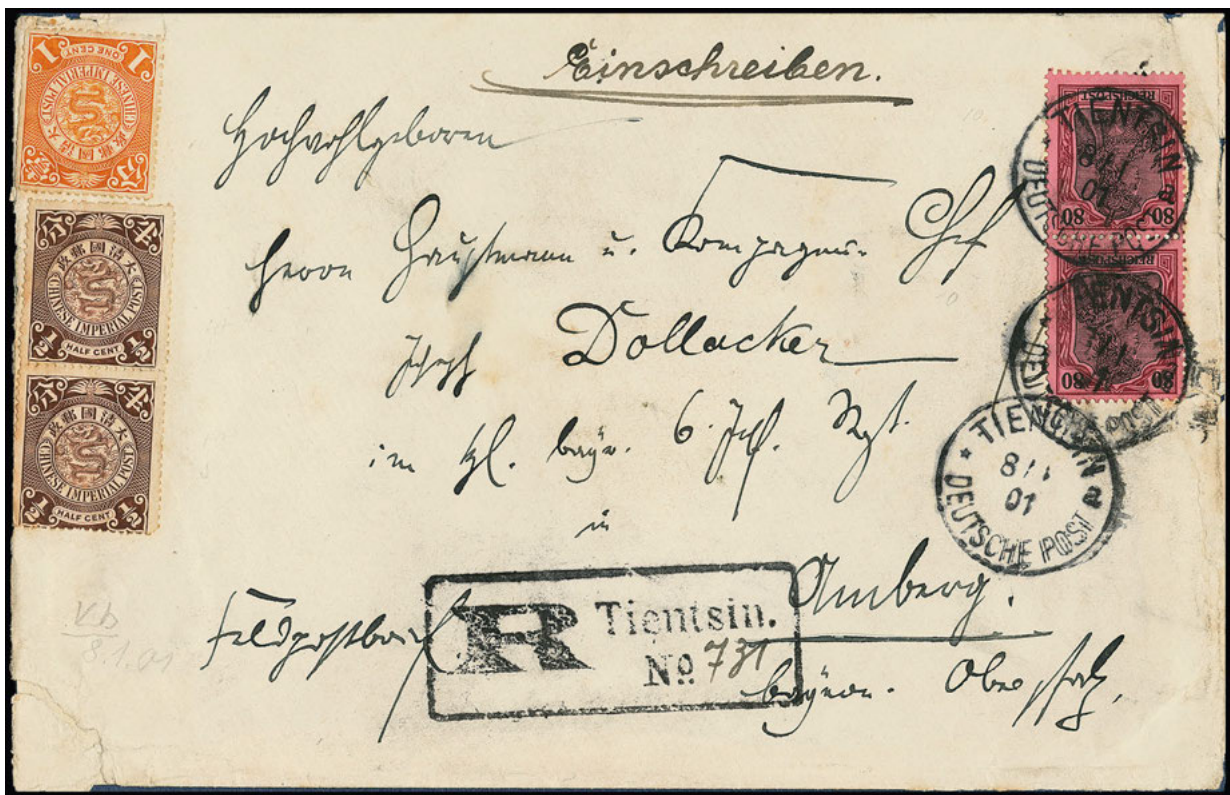 Einschreiben.
Hochwohlgeboren
Herrn Hauptmann u. Kompagnie-Chef
Dollacker
im Kgl. bayr. 6. Inf. Rgt.
in
Amberg.
bayer. Oberpfalz.
Feldpostbrief.
R Tientsin.
No 731
V.b
8.1.01
ONE CENT
1 1
CHINESE IMPERIAL POST
大清國郵政
分 壹
分 半
大清國郵政
CHINESE IMPERIAL POST
½ HALF CENT ½
分 半
大清國郵政
CHINESE IMPERIAL POST
½ HALF CENT ½
REICHSPOST
80 80
REICHSPOST
80 80
TIENTSIN
8/1
01
a
DEUTSCHE POST
TIENTSIN
DEUTSCHE POST
TIENTSIN
8/1
01
a
DEUTSCHE POST